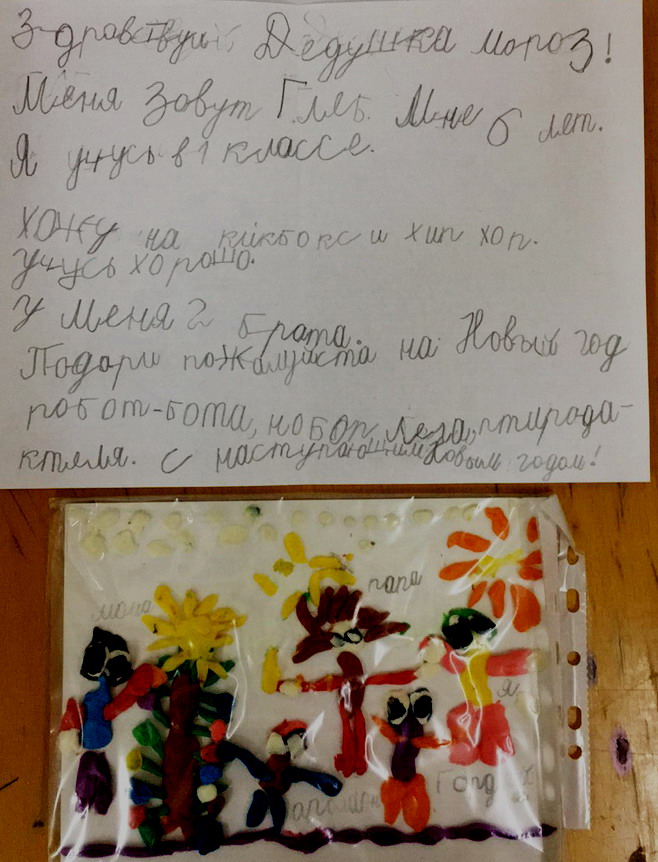 Здравствуй Дедушка мороз!
Меня Зовут Глеб. Мне 6 лет.
Я учусь в 1 классе.
хожу на кикбокс и хип хоп.
учусь хорошо.
У Меня 2 брата.
Подари пожалуйста на Новый год
робот-бота, нобор Лега, птирода-
ктеля. С наступающим Новым годом!
мама
папа
я